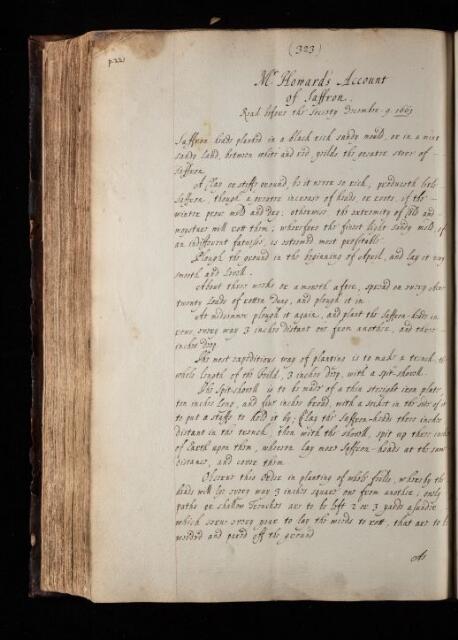 (323)
p. 221
Mr Howard's Account
of Saffron.
Read before the Society December. 9. 1663
Saffron heads planted in a black rich sandy mould, or in a mixt
sandy land, between white and red yeilds the greater store of
Saffron.
A Clay or stiffe ground, be it never so rich, produceth little
Saffron, though a greater increase of heads, or roots, if the
winter prove mild and dry; otherwise, the extremity of cold and
moysture will rott them; wherefore the finest light sandy mould, of
an indifferent fatnesse, is esteemed most profitable.
Plough the ground in the beginning of April, and lay it very
smooth and levell.
About three weeks or a month after, spread on every Acre
twenty Loads of rotten Dung, and plough it in.
At midsummer plough it again, and plant the Saffron-heads in
rows, every way 3 inches distant one from another, and three
inches deep.
The most expeditious way of planting is to make a trench, the
whole length of the feild, 3 inches deep, with a spit-shovell.
The Spit-shovell is to be made of a thin streight iron plate,
ten inches long, and five inches broad, with a socket in the side of it
to put a staffe to hold it by; Lay the Saffron-heads three inches
distant in the trench, then with the shovell, spit up three inches
of Earth upon them, wherein lay more Saffron-heads at the same
distance, and cover them
Observe this Order in planting of whole feilds, whereby the
heads will lye every way 3 inches square one from another; only
paths or shallow Trenches are to be left 2 or 3 yards asunder
which serve every year to lay the weeds to rott, that are to be
weeded and pared off the ground
As